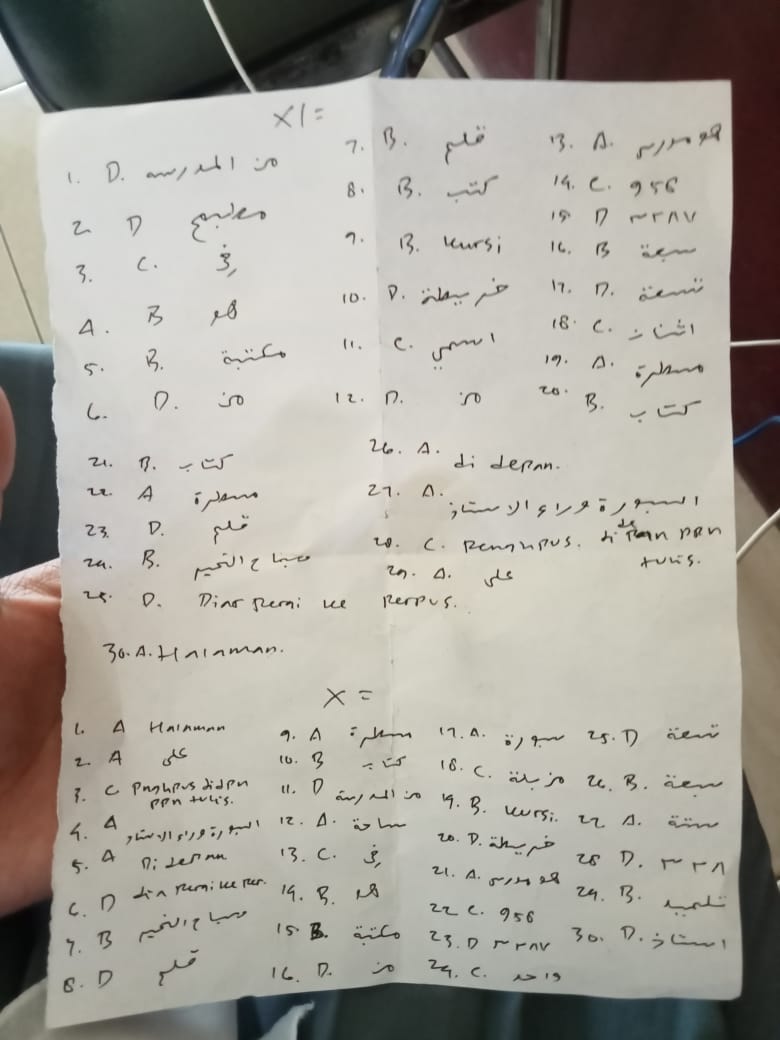 XI =
1. D. من المدرسه
2. D
3. C. في
4. B هو
5. B. مكتبة
6. D. من
7. B. قلم
8. B. كتب
9. B. kursi
10. D. خريطة
11. C. اسمي
12. D. من
13. A. هو مدرس
14. C. 956
15. D ٣٢٨٧
16. B سبعة
17. D. تسعة
18. C. اثنان
19. A. مسطرة
20. B. كتاب
21. B. كتاب
22. A مسطرة
23. D. قلم
24. B. صباح الخير
25. D. Dina pergi ke perpus.
26. A. di depan.
27. A. السبورة وراء الاستاذ
28. C. Penghpus. di
tulis.
29. A. على
30. A. Halaman.
X =
1. A Halaman
2. A على
3. C
ppn tulis.
4. A السبورة وراء الاستاذ
5. A Di depan
6. D
7. B صباح الخير
8. D قلم
9. A مسطرة
10. B كتاب
11. D من المدرسة
12. A. ساحة
13. C. في
14. B. هو
15. B. مكتبة
16. D. من
17. A. سبورة
18. C. مزبلة
19. B. kursi.
20. D. خريطة
21. A. هو مدرس
22. C. 956
23. D ٣٢٨٧
24. C. واحد
25. D تسعة
26. B. سبعة
27. A. ستة
28. D. ٣٢٨
29. B. تلميذ
30. D. استاذ